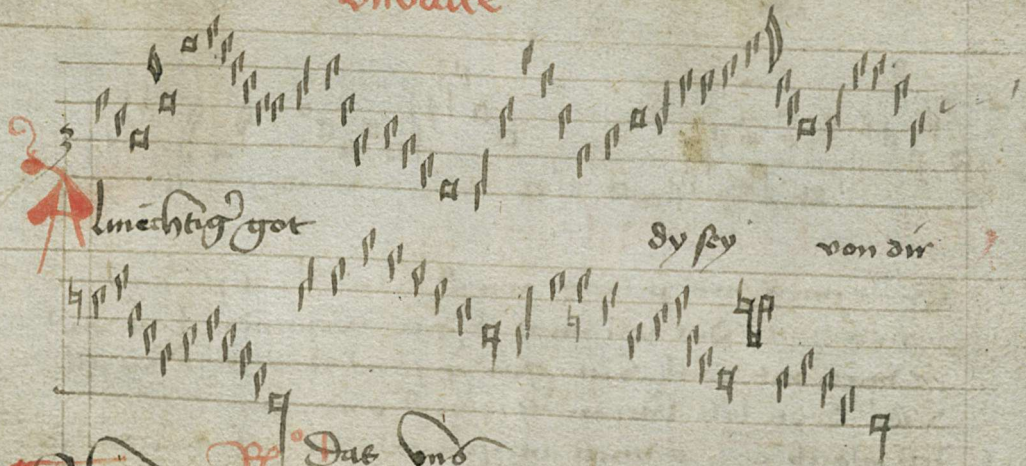 Almechtiger got dy sey von dir
Das vns